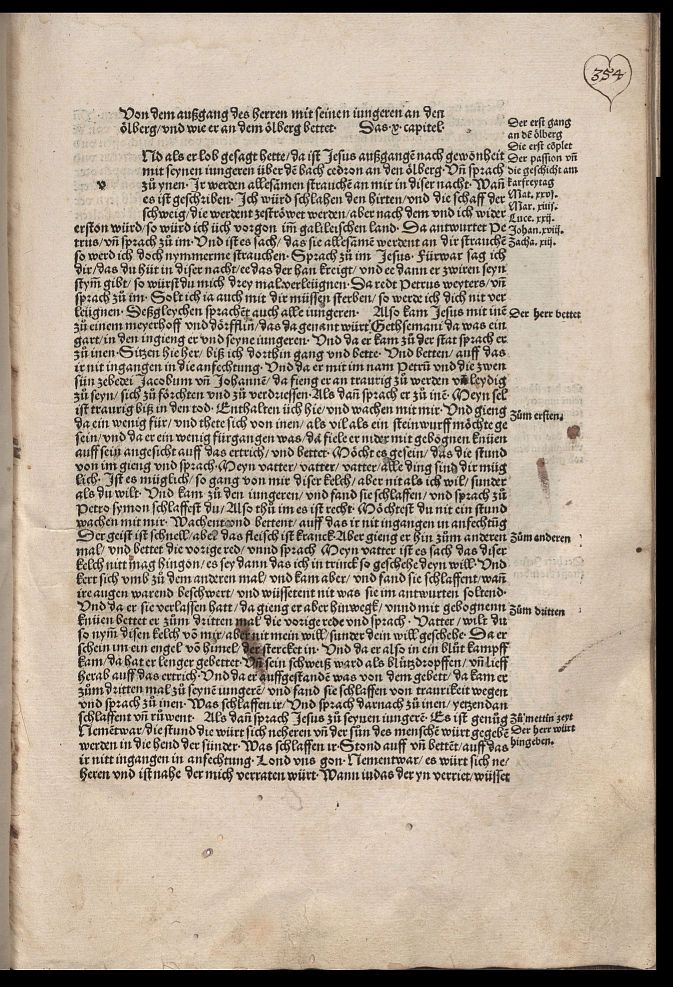 354
Von dem außgang des herren mit seinen iungeren an den
ölberg/vnd wie er an dem ölberg bettet· Das·x·capitel·
Der erst gang
an dē ölberg
Die erst cōplet
Der passion vñ
die geschicht am
karfreytag
Mat. xxvj.
Mar. xiiij.
Luce. xxij.
Johan. xviij.
Zacha. xiij.
v
Nd als er lob gesagt hette/da ist Jesus außgangē nach gewonheit
mit seynen iungeren über dē bach cedron an den ölberg· Vñ sprach
zů ynen· Ir werden allesamen strauchē an mir in diser nacht· Wañ
es ist geschriben· Ich würd schlahen den hirten/vnd die schaff der
schweig/die werdent zeströwet werden/aber nach dem vnd ich wider
erston würd/so würd ich üch vorgon im̄ galileischen land· Da antwurtet Pe
trus/vñ sprach zů im· Vnd ist es sach/das sie allesamē werdent an dir strauchē
so werd ich doch nymmerme strauchen· Sprach zů im Jesus· Fürwar sag ich
dir/das du hüt in diser nacht/ee das der han kreigt/vnd ee dann er zwiren seyn
stym̄ gibt/so würst du mich drey mal verleügnen· Da redt Petrus weyters/vñ
sprach zů im· Solt ich ia auch mit dir müssen sterben/so werde ich dich nit ver
leügnen· Deßgleychen sprachēt auch alle iungeren· Also kam Jesus mit inē
zů einem meyerhoff vnd dörfflin/das da genant würt Gethsemani da was ein
gart/in den ingieng er vnd seyne iungeren· Vnd da er kam zů der stat sprach er
zů inen· Sitzen hie her/biß ich dorthin gang vnd bette· Vnd betten/auff das
ir nit ingangen in die anfechtung· Vnd da er mit im nam Petrū vnd die zwen
sün zebedei Jacobum vñ Johannē/da fieng er an traurig zů werden vñ leydig
zů seyn/sich zů förchten vnd zů verdriessen· Als dañ sprach er zů inē· Meyn sel
ist traurig biß in den tod· Enthalten üch hie/vnd wachen mit mir· Vnd gieng
da ein wenig für/vnd thete sich von inen/als vil als ein steinwurff möchte ge
sein/vnd da er ein wenig fürgangen was/da fiele er nider mit gebognen knüen
auff sein angesicht auff das ertrich/vnd bettet· Möcht es gesein/das die stund
von im gieng vnd sprach· Meyn vatter/vatter/vatter/alle ding sind dir müg
lich· Ist es müglich/so gang von mir diser kelch/aber nit als ich wil/sunder
als du wilt· Vnd kam zů den iungeren/vnd fand sie schlaffen/vnd sprach zů
Petro symon schlaffest du/Also thů im es ist recht· Möchtest du nit ein stund
wachen mit mir· Wachent vnd bettent/auff das ir nit ingangen in anfechtūg
Der geist ist schnell/aber das fleisch ist kranck· Aber gieng er hin zům anderen
mal/vnd bettet die vorige red/vnnd sprach Meyn vatter ist es sach das diser
kelch nitt mag hingon/es sey dann das ich in trinck so geschehe deyn will· Vnd
kert sich vmb zů dem anderen mal/vnd kam aber/vnd fand sie schlaffent/wañ
ire augen warend beschwert/vnd wüssetent nit was sie im antwurten soltend·
Vnd da er sie verlassen hatt/da gieng er aber hinwegk/vnnd mit gebognenn
knüen bettet er zům dritten mal die vorige rede vnd sprach· Vatter/wilt du
so nym̄ disen kelch vō mir/aber nit mein will/sunder dein will geschehe· Da er
schein im ein engel vō himel/der stercket in· Vnd da er also in ein blůt kampff
kam/da hat er lenger gebettet· Vñ sein schweiß ward als blůtzdropffen/vñ lieff
herab auff das ertrich· Vnd da er auffgestandē was von dem gebett/da kam er
zům dritten mal zů seynē iungerē/vnd fand sie schlaffen von traurikeit wegen
vnd sprach zů inen· Was schlaffen ir/Vnd sprach darnach zů inen/yetzendan
schlaffent vñ růwent· Als dañ sprach Jesus zů seynen iungerē· Es ist genůg
Nemētwar/die stund die würt sich neheren vñ der sun des menschē würt gegebē
werden in die hend der sünder· Was schlaffen ir· Stond auff vñ bettēt/auff das
ir nitt ingangen in anfechtung· Lond vns gon· Nementwar/es würt sich ne/
heren vnd ist nahe der mich verraten würt· Wann iudas der yn verriet/wüsset
Der herr bettet
Zům ersten.
Zům anderen
Zům dritten
Zů mettin zeyt
Der herr würt
hingeben.